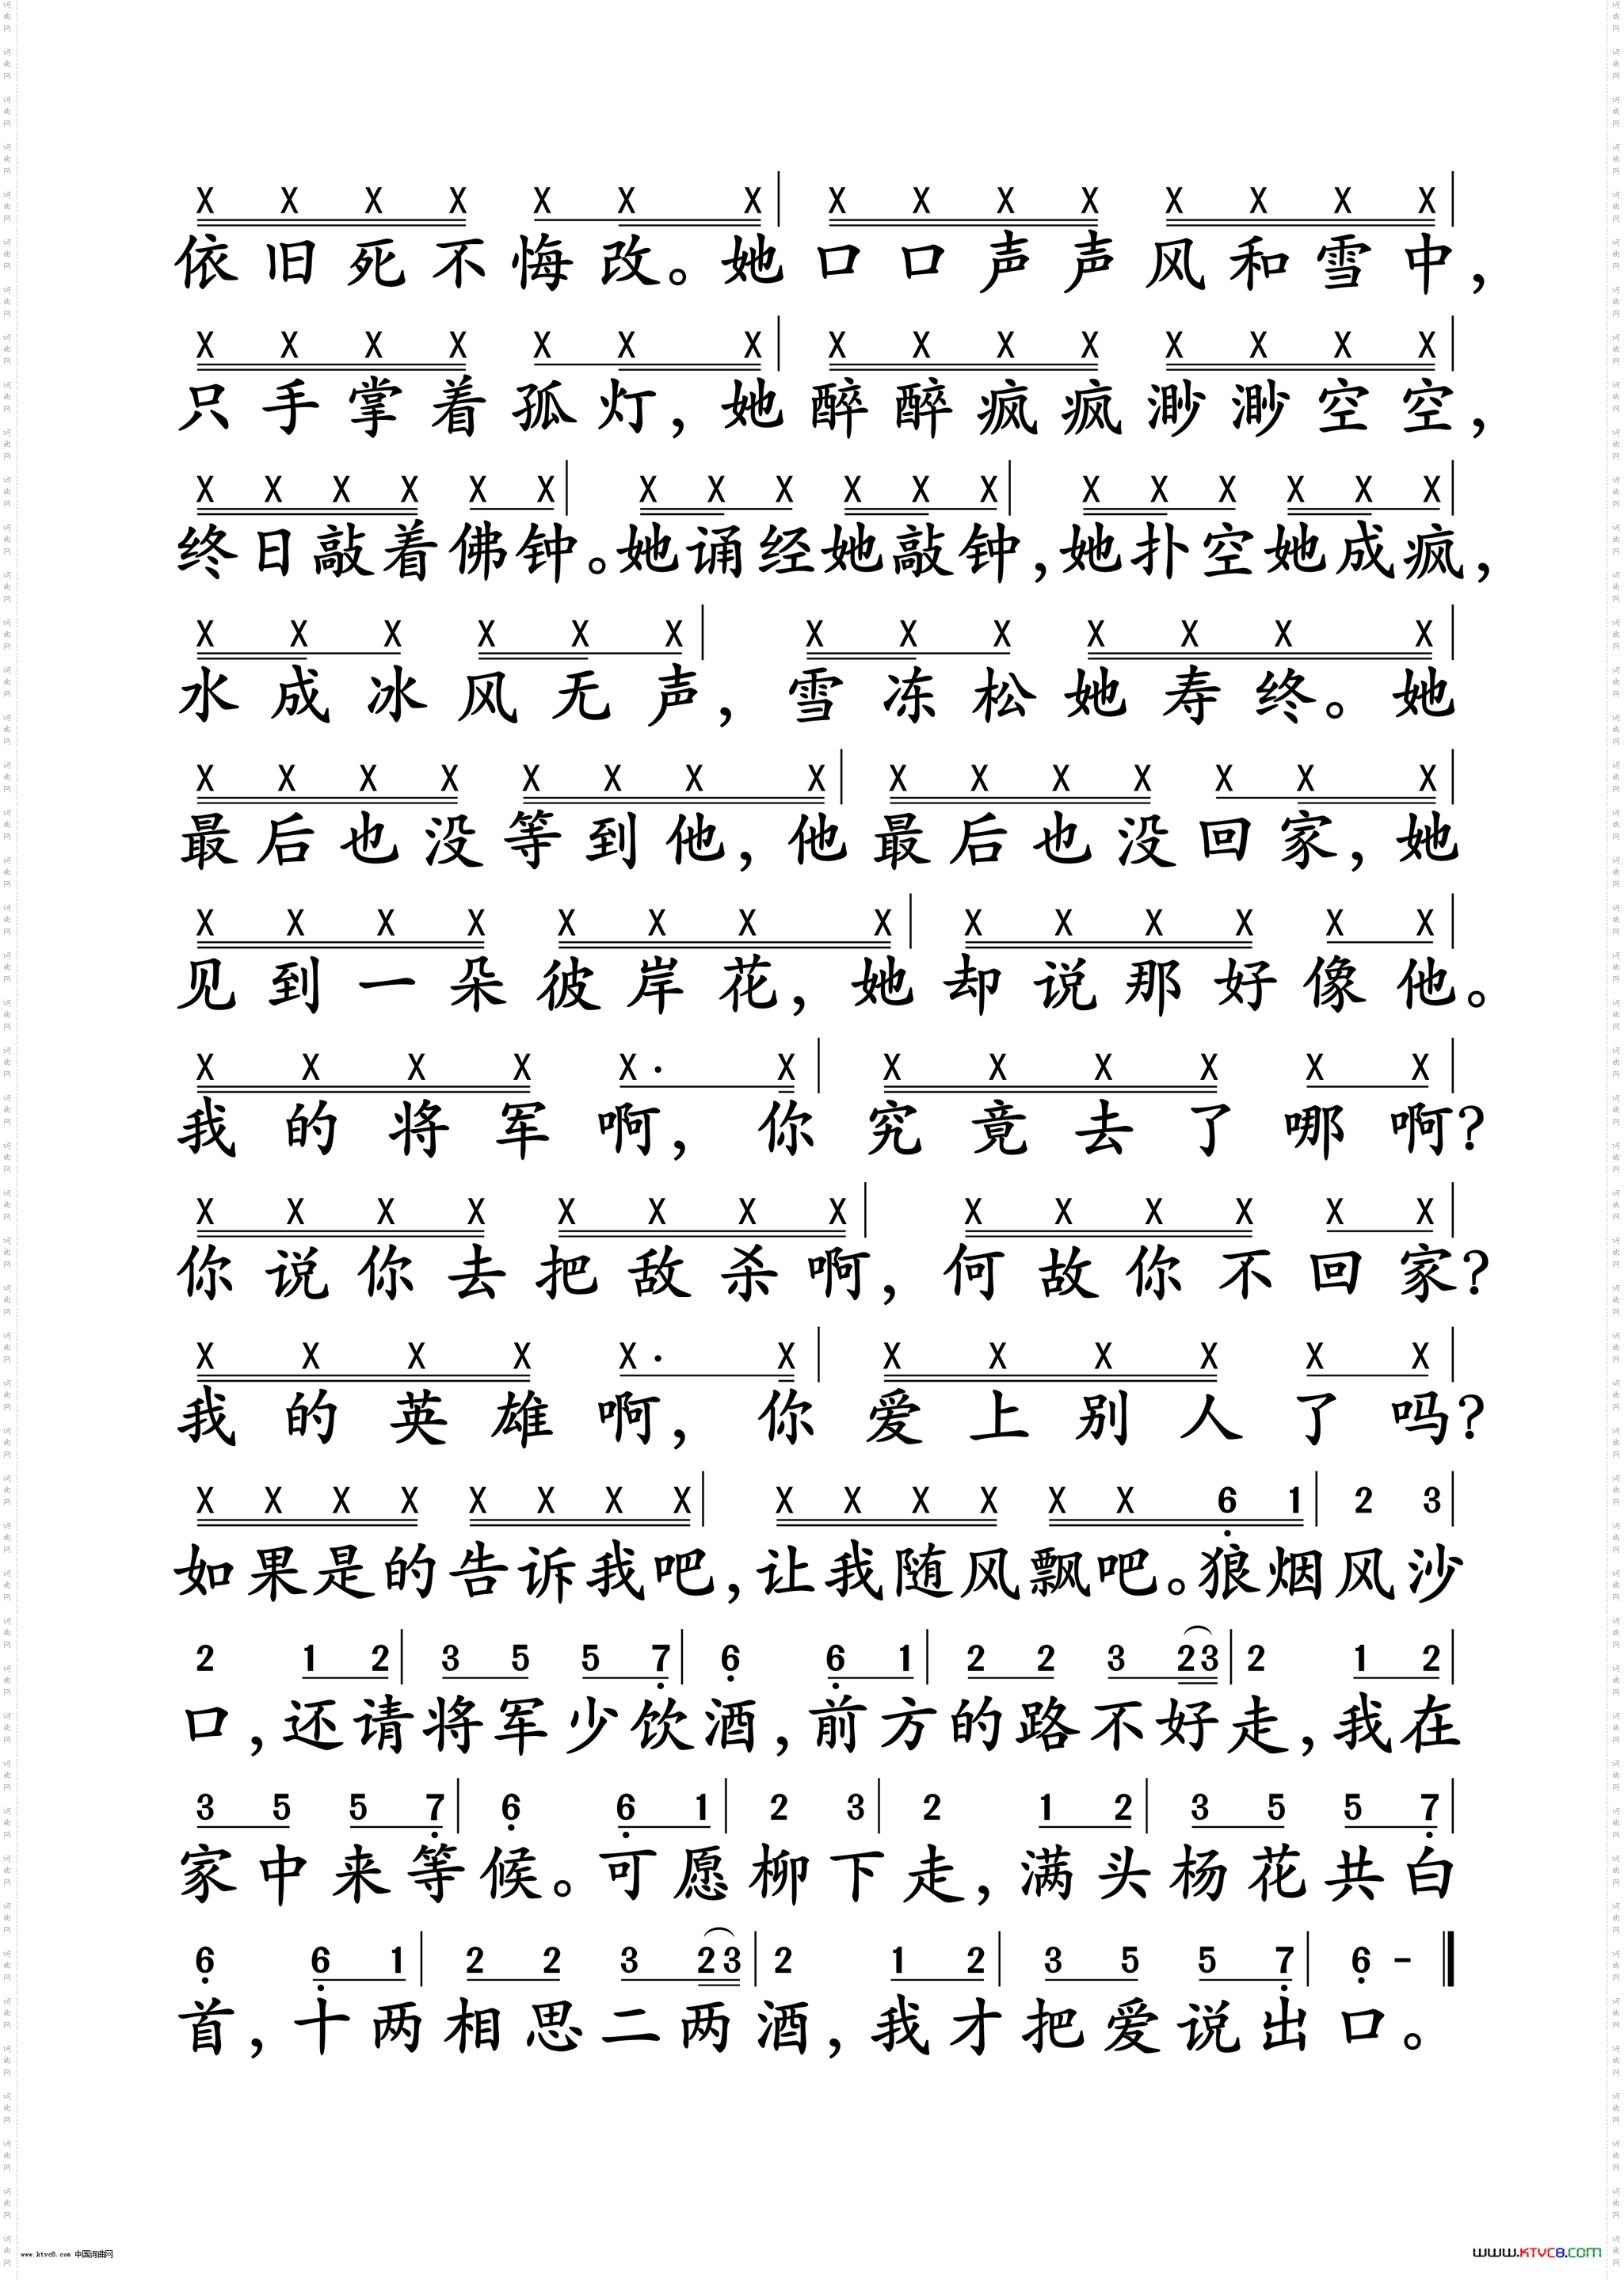 X X X X X X X | X X X X X X X X |
依旧死不悔改。她口口声声风和雪中，
X X X X X X X | X X X X X X X X |
只手掌着孤灯，她醉醉疯疯渺渺空空，
X X X X X X | X X X X X X | X X X X X X |
终日敲着佛钟。她诵经她敲钟，她扑空她成疯，
X X X X X X | X X X X X X X |
水成冰风无声，雪冻松她寿终。她
X X X X X X X X | X X X X X X X |
最后也没等到他，他最后也没回家，她
X X X X X X X X | X X X X X X |
见到一朵彼岸花，她却说那好像他。
X X X X X· X | X X X X X X |
我的将军啊，你究竟去了哪啊？
X X X X X X X X | X X X X X X |
你说你去把敌杀啊，何故你不回家？
X X X X X· X | X X X X X X |
我的英雄啊，你爱上别人了吗？
X X X X X X X X | X X X X X X 6 1 | 2 3 |
如果是的告诉我吧，让我随风飘吧。狼烟风沙
2 1 2 | 3 5 5 7 | 6 6 1 | 2 2 3 2 3 | 2 1 2 |
口，还请将军少饮酒，前方的路不好走，我在
3 5 5 7 | 6 6 1 | 2 3 | 2 1 2 | 3 5 5 7 |
家中来等候。可愿柳下走，满头杨花共白
6 6 1 | 2 2 3 2 3 | 2 1 2 | 3 5 5 7 | 6 - ‖
首，十两相思二两酒，我才把爱说出口。
www.ktvc8.com 中国词曲网
WWW.KTVC8.COM